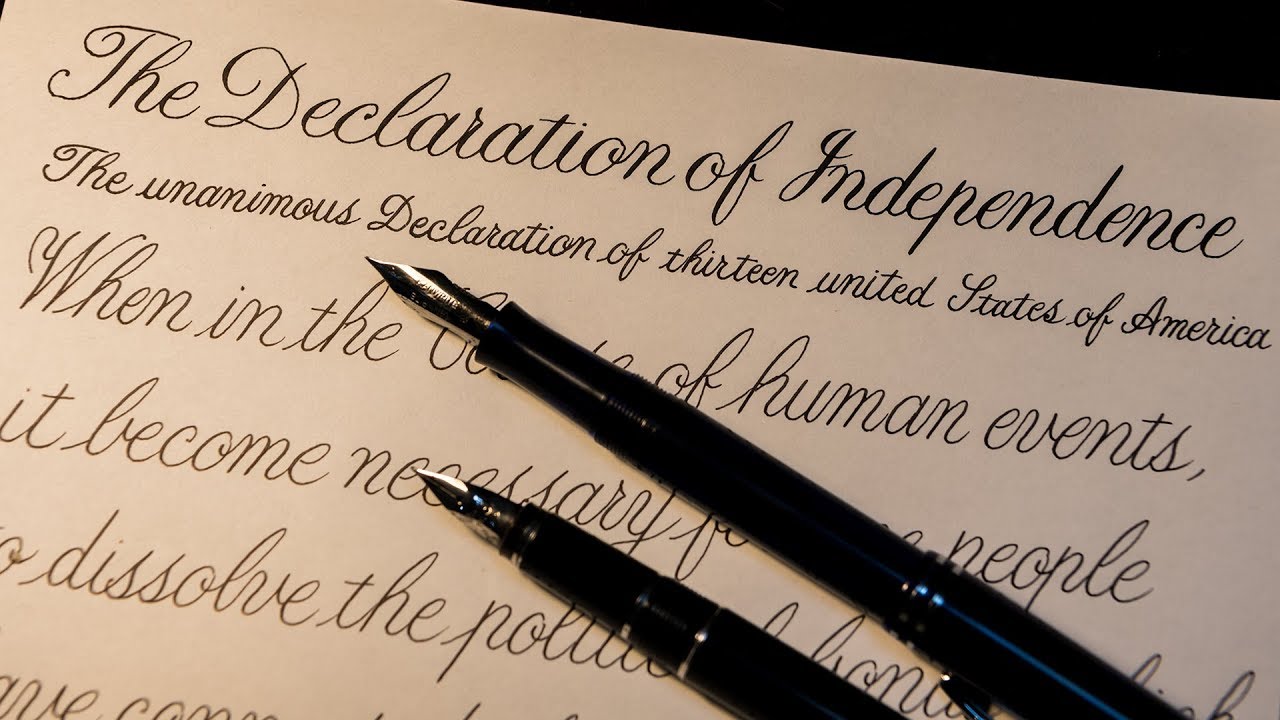 The Declaration of Independence
The unanimous Declaration of thirteen united States of America
When in the of human events,
it become necessary people
dissolve the